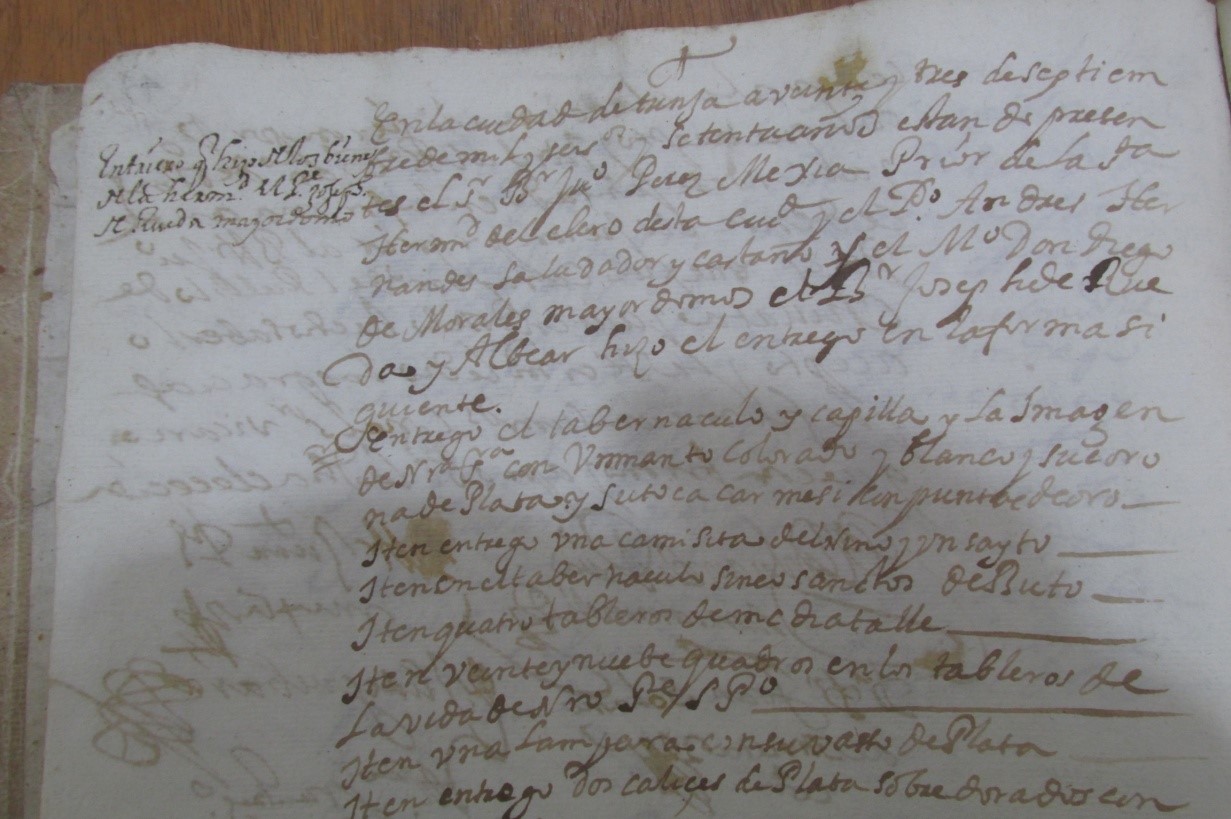 Entrego q hizo de los bienes
de la herm.d el P.e Joseph
de Rueda mayordomo
En la ciudad de tunja a veinte y tres de septiem
bre de mil y seis y setenta años estan de presen
tes el S.r B.r Ju.o Perez Mexia Prior de la S.ta
Herm.d del clero desta ciud.d y el P.e Andres Her
nandes saludador y castaño y el M.o Don diego
de Morales mayordomos el B.r Joseph de Rue
da y Albear hizo el entrego en la forma si
guiente.
entrego el tabernaculo y capilla y la Imagen
de Nra Sra con Un manto Colorado y blanco y su coro
na de Plata y su toca carmesi con puntas de oro
Iten entrego vna camisita del Nino y vn sayto
Iten en el tabernaculo sinco sanctos de Bulto
Iten quatro tableros de media talle
Iten veinte y nuebe quadros en los tableros de
La vida de Nro Pe S P.o
Iten vna Lampara con su vaso de Plata
Iten entrego Dos calices de Plata sobre dorados con